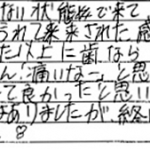 ない状態で来て
られて来来された.感
た以上に歯なら
ん!痛いなー。と思
て良かったと思い
はありましたが、終
。8